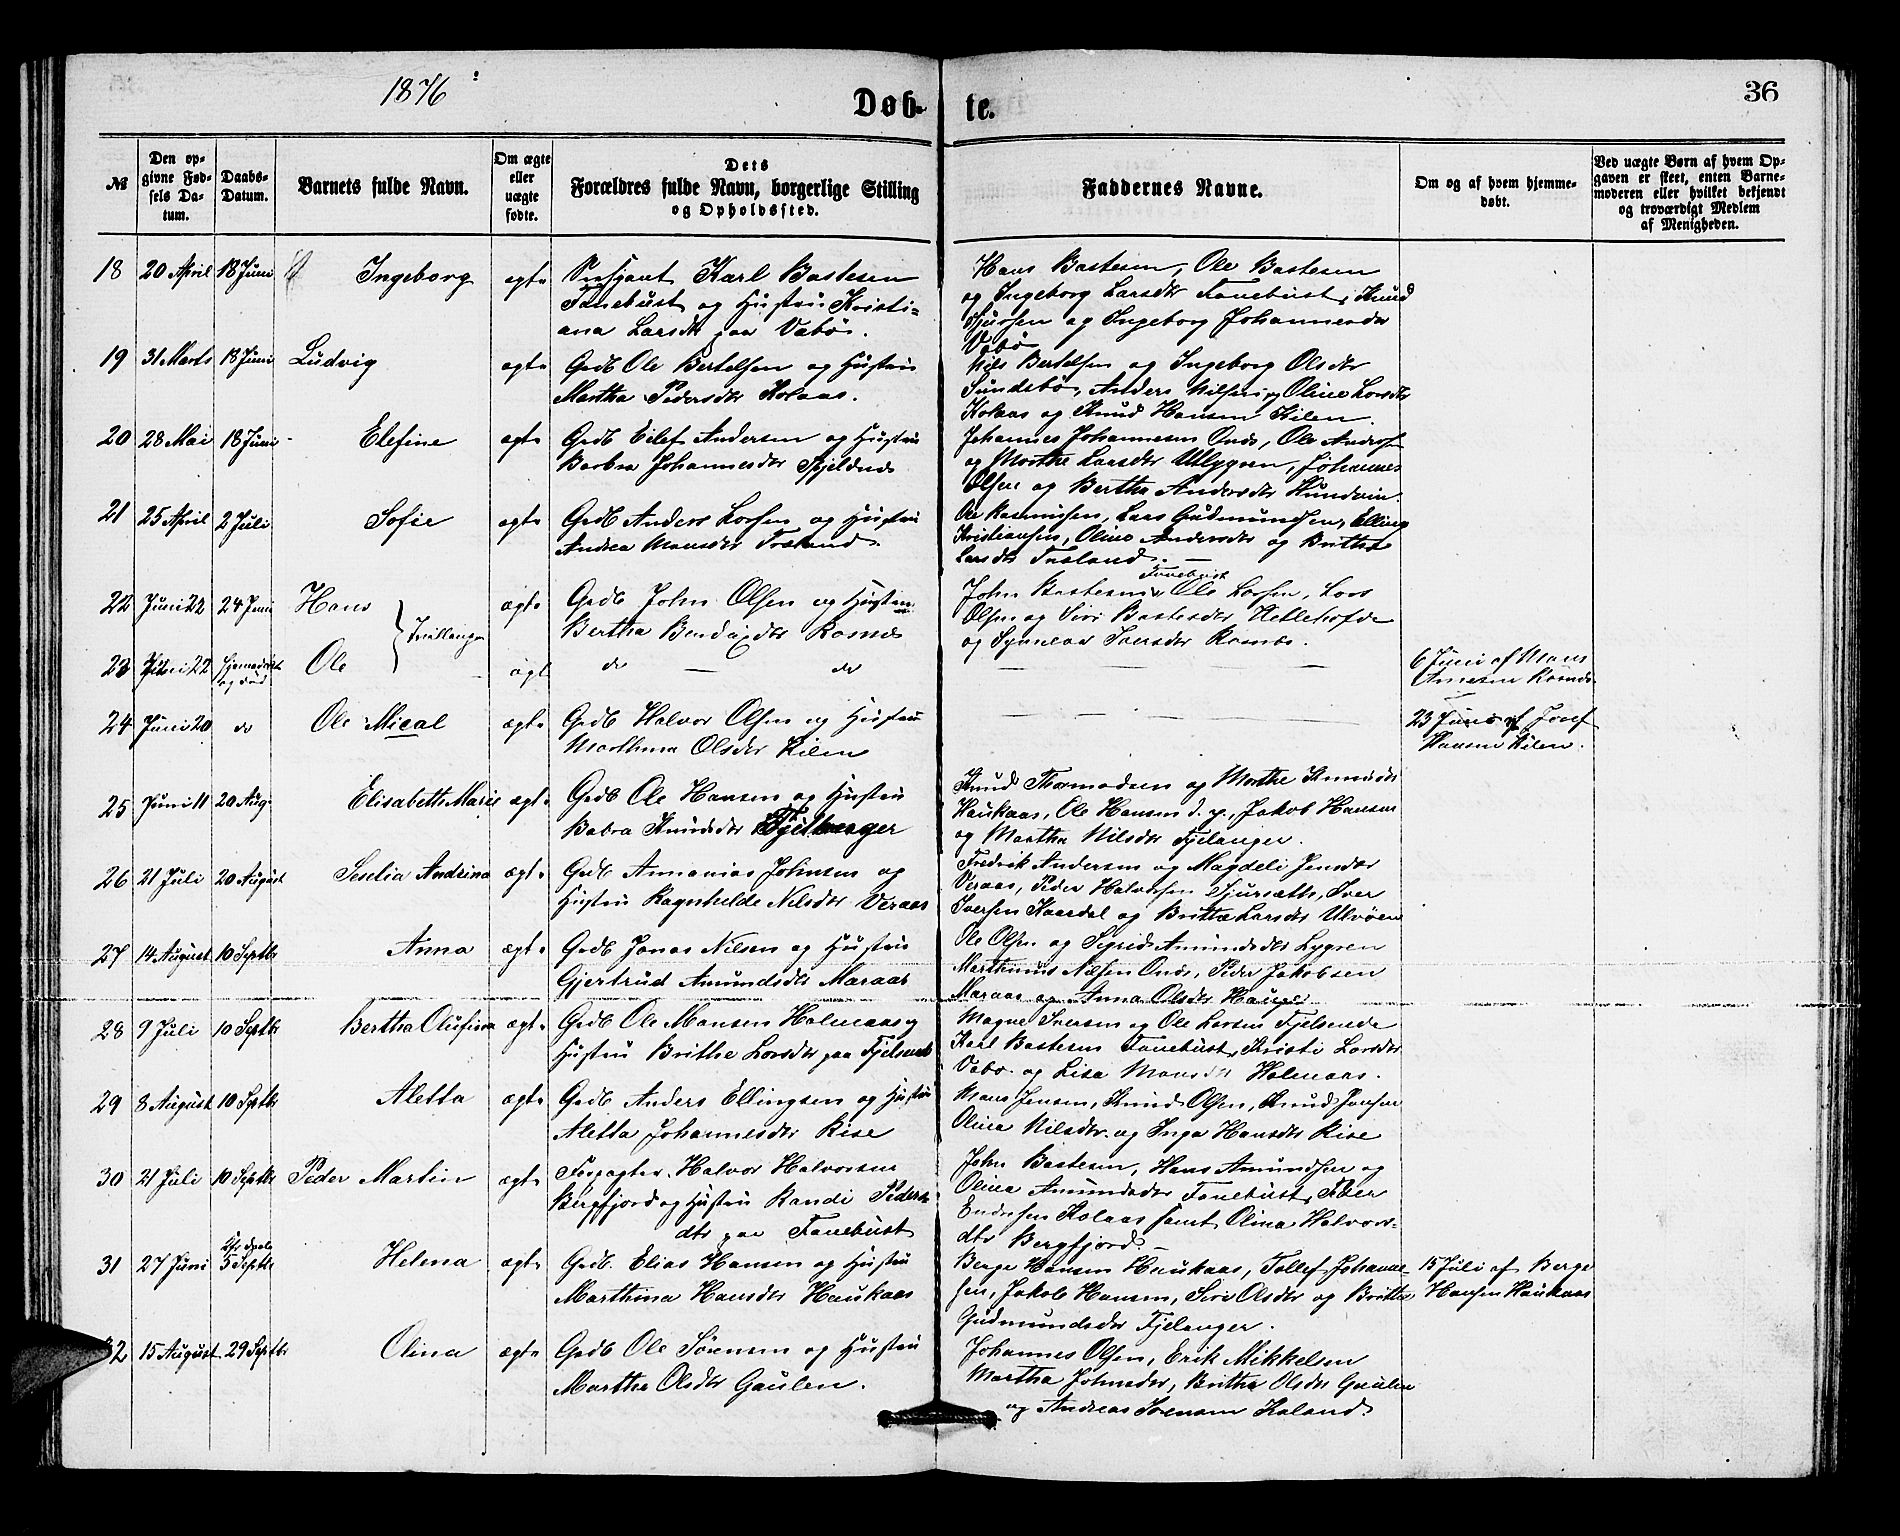 1876
Døb-te.
36
№
Den opgivne Fødsels Datum.
Daabs-Datum.
Barnets fulde Navn.
Om ægte eller uægte fødte.
Dets Forældres fulde Navn, borgerlige Stilling og Opholdssted.
Faddernes Navne.
Om og af hvem hjemmedøbt.
Ved uægte Børn af hvem Opgaven er skeet, enten Barnemoderen eller hvilket bekjendt og troværdigt Medlem af Menigheden.
18 20 April 18 Juni Ingeborg egte Karl Bastesen
Tanebust og Hustru Kristi-
ana Larsdtr paa Vabø.
Hans Bastesen, Ole Bastesen
og Ingeborg Larsdtr Fanebust, Knud
Sjursen og Ingeborg Johannesdtr
Vabø
19 31 Marts 18 Juni Ludvig egte Grdb Ole Bertelsen og Hustru
Martha Pedersdtr Kolaas.
Nils Bertelsen og Ingeborg Olsdtr
Sundsbø, Anders Nilsen og Oline Larsdtr
Kolaas og Knud Hansen Kilen.
20 28 Mai 18 Juni Elefine egte Grdb Eilef Andersen og Hustru
Barbra Johannesdtr
Johannes Johannesen Onds, Ole Anders
og Marthe Larsdtr Utlygren, Johannes
Olsen og Bertha Andersdtr Hundvin
21 25 April 2 Juli Sofie egte Grdb Anders Larsen og Hustru
Andrea Monsdtr Træland
Ole Rasmussen, Lars Gudmundsen, Elling
Kristiansen, Oline Andersdtr og Britha
Larsdtr Træland.
22 Juni 22 24 Juni Hans Tvillinger ægte Grdb John Olsen og Hustru
Bertha Bendixdtr Rosnæs
Fanebust
John Bastesen, Ole Larsen, Lars
Olsen og Siri Bastesdtr
og Synneva Iversdtr Rosnæs.
23 Juni 22 hjemmedøbt og død Ole ægt do — do
6 Juni af Mons
Arnesen Rosnæs
24 Juni 20 do Ole Mical ægte Grdb Halvor Olsen og Hustru
Marthina Olsdtr Kilen
23 Juni af Josef
Hansen Kilen.
25 Juni 11 20 Aug. Elisabeth Marie ægte Grdb Ole Hansen og Hustru
Babra Knudsdtr Fjellanger
Knud Thormodsen og Marthe Knudsdtr
Haukaas, Ole Hansen d. y., Jakob Hansen
og Martha Nilsdtr Fjelanger.
26 21 Juli 20 August Seselia Andrina ægte Grdb Annanias Johnsen og
Hustru Ragnhilde Nilsdtr Veraas
Fredrik Andersen og Magdeli Jensdtr
Veraas, Peder Halvorsen Sjursæth, Iver
Iversen Kaardal og Britta Larsdtr Ulvøen
27 14 August 10 Septbr Anna ægte Grdb Jonas Nilsen og Hustru
Gjertrud Amundsdtr Maraas
Ole Olsen og Sigrid Amundsdtr Lygren
Marthinus Nilsen Onds, Peder Jakobsen
Maraas og Anna Olsdtr Hauge
28 9 Juli 10 Septbr Bertha Olufina ægte Grdb Ole Monsen Holmaas og
Hustru Brithe Larsdtr paa Fjelsende
Magne Iversen og Ole Larsen Fjelsende
Karl Bastesen Fanebust, Kristi Larsdtr
Vabø og Lisa Monsdtr Holmaas.
29 8 August 10 Septbr Aletta ægte Grdb Anders Ellingsen og Hustru
Aletta Johannesdtr Rise
Mons Jensen, Knud Olsen, Knud Jonsen
Olina Nilsdtr og Inga Hansdtr Rise
30 21 Juli 10 Septbr Peder Martin ægte Forpagter Halvor Halvorsen
Bergfjord og Hustru Randi Peders-
dtr paa Fanebust
John Bastesen, Hans Amundsen og
Olina Amundsdtr Fanebust, Peder
Endresen Kolaas samt Olina Halvors-
dtr Bergfjord.
31 27 Juni 5 Septbr Helena ægte Grdb. Elias Hansen og Hustru
Marthina Hansdtr Haukaas
Berge Hansen Haukaas, Tollef Johanne-
sen, Jakob Hansen, Siri Olsdtr og Britta
Gudmundsdtr Fjelanger.
15 Juli af Berge
Hansen Haukaas
32 15 August 29 Septbr Olina ægte Grdb Ole Sørensen og Hustru
Marthe Olsdtr Gaulen.
Johannes Olsen, Erik Mikkelsen
Martha Johnsdtr, Britha Olsdtr Gaulen
og Andreas Sørensen Kaland.